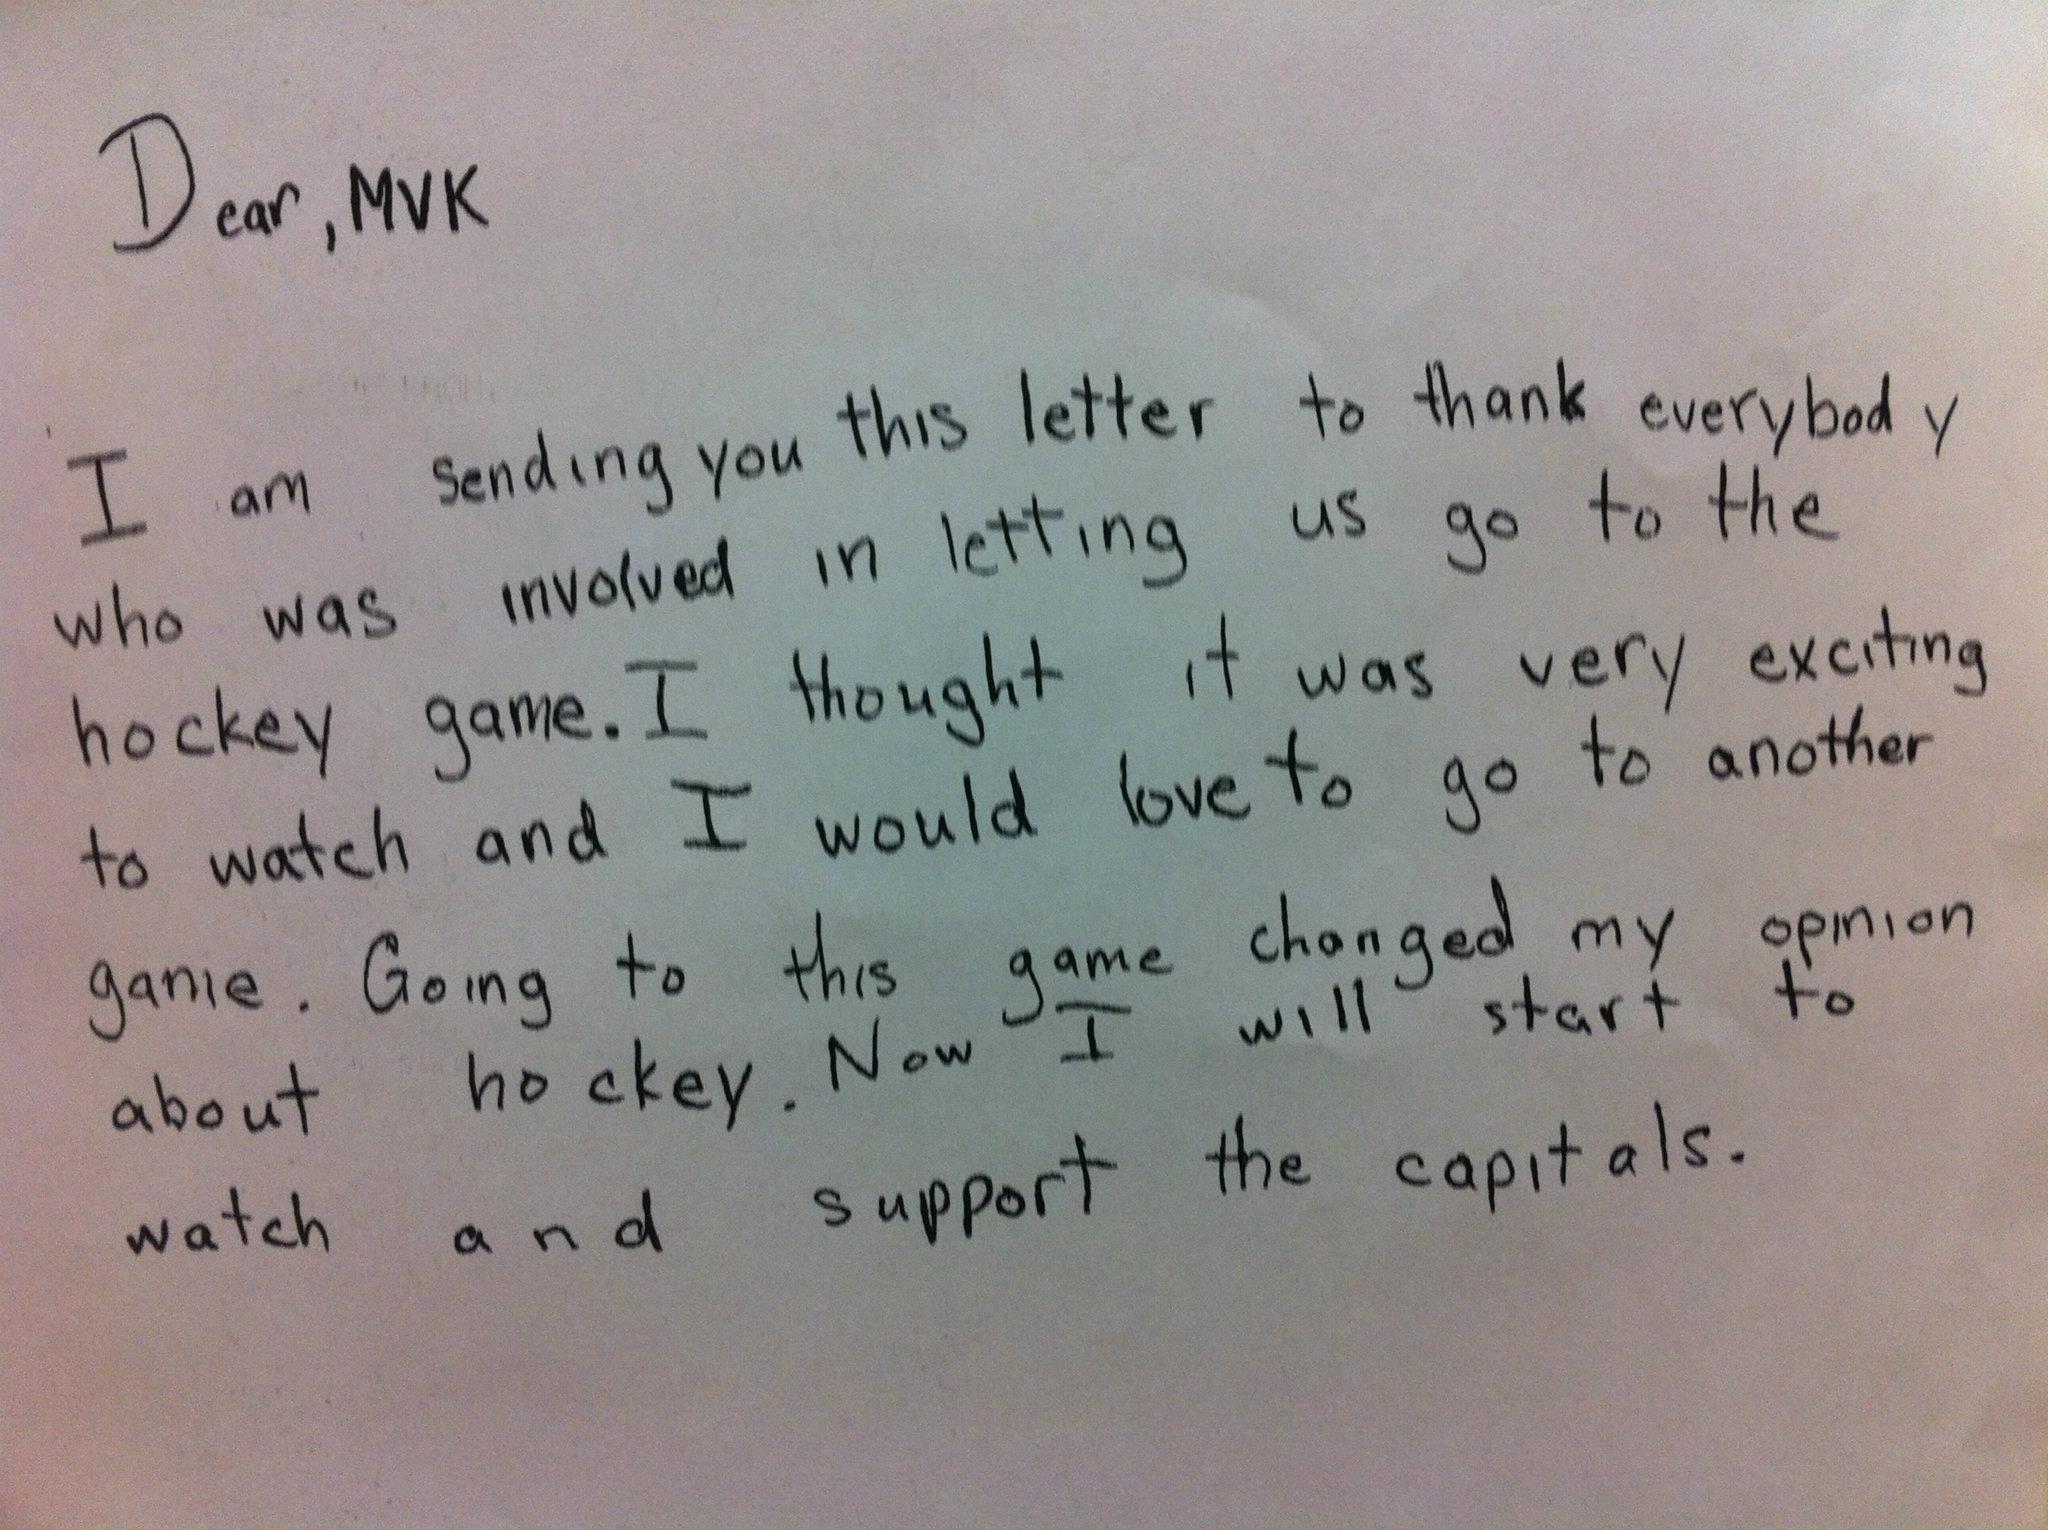 Dear, MVK
I am sending you this letter to thank everybody
who was involved in letting us go to the
hockey game. I thought it was very exciting
to watch and I would love to go to another
game. Going to this game changed my opinion
about hockey. Now I will start to
watch and support the capitals.